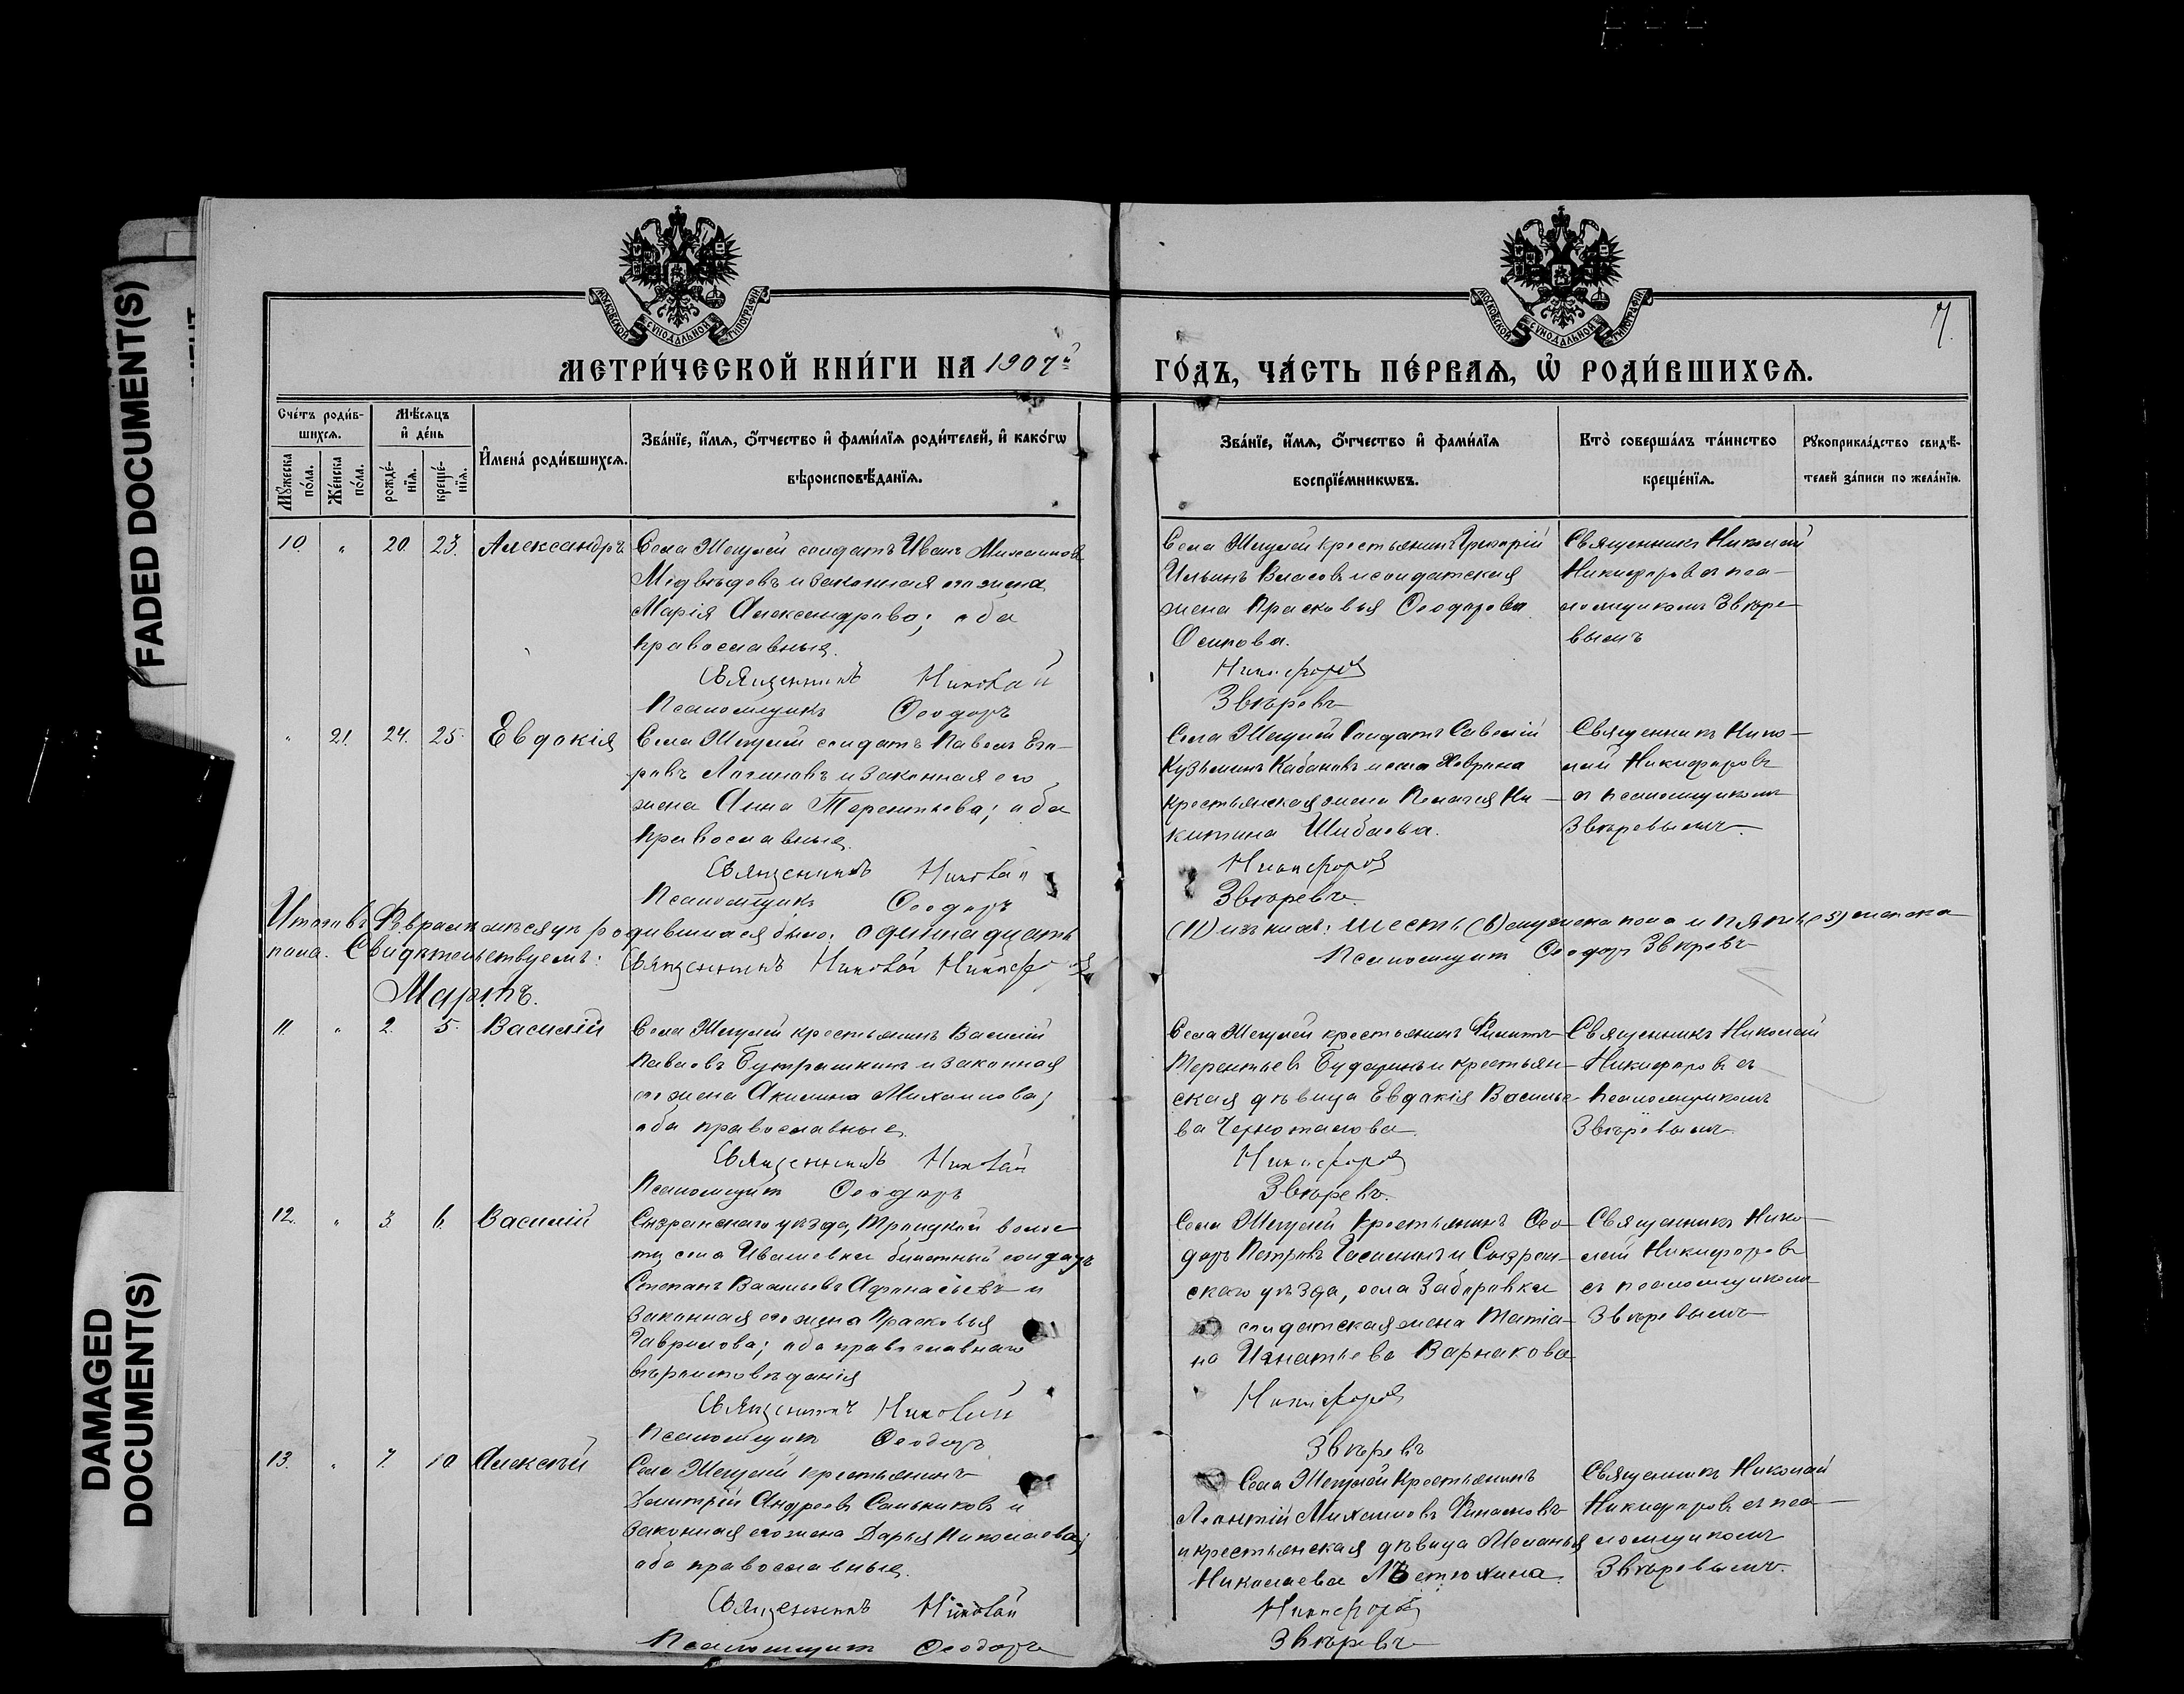 FADED DOCUMENT(S)
DAMAGED
DOCUMENT(S)
МОСКОВСКОЙ СУНОДАЛЬНОЙ ТИПОГРАФІИ
МОСКОВСКОЙ СУНОДАЛЬНОЙ ТИПОГРАФІИ
7.
МЕТРИ́ЧЕСКОЙ КНИ́ГИ НА 1907й
ГО́ДЪ, ЧА́СТЬ ПЕ́РВАѦ, Ѡ҆ РОДИ́ВШИХСѦ.
Сче́тъ роди́в-
шихсѧ.
Мѣ́сѧцъ
и҆ де́нь
И҆мена́ роди́вшихсѧ.
Зва́нїе, и҆́мѧ, ѻ҆́тчество и҆ фами́лїѧ роди́телей, и҆ како́гѡ
вѣроисповѣ́данїѧ.
Мꙋ́жеска
по́ла.
Же́нска
по́ла.
рожде́-
нїѧ.
креще́-
нїѧ.
Зва́нїе, и҆́мѧ, ѻ҆́тчество и҆ фами́лїѧ
воспрїе́мникѡвъ.
Кто̀ соверша́лъ та́инство
креще́нїѧ.
Рꙋкоприкла́дство свидѣ́-
телей за́писи по жела́нїю.
10. " 20. 23. Александръ
Села Жегулей солдатъ Иванъ Михаиловъ
Медвѣдевъ и законная его жена
Марія Александрова; оба
православные.
Священникъ Николай
Псаломщикъ Ѳеодоръ
Села Жегулей крестьянинъ Григорій
Ильинъ Власовъ и солдатская
жена Прасковья Ѳеодорова
Осипова.
Никифоровъ
Звѣревъ
Священникъ Николай
Никифоровъ съ пса-
ломщикомъ Звѣре-
вымъ
" 21. 24. 25. Евдокія
Села Жегулей солдатъ Павелъ Его-
ровъ Логиновъ и законная его
жена Анна Терентьева; оба
православные.
Священникъ Николай
Псаломщикъ Ѳеодоръ
Села Жегулей Солдатъ Савелій
Кузьминъ Кабановъ и села
крестьянская жена Пелагея Ни-
китина Шибаева.
Никифоровъ
Звѣревъ.
Священникъ Нико-
лай Никифоровъ
съ псаломщикомъ
Звѣревымъ.
Итого въ Февралѣ мѣсяцѣ родившихся было: одиннадцать
(11) изъ нихъ: шесть (6) мужска пола и пять (5) женска
пола. Свидѣтельствуемъ: Священникъ Николай Никифоровъ
Псаломщикъ Ѳеодоръ Звѣревъ
Мартъ.
11. " 2. 5. Василій
Села Жегулей крестьянинъ Василій
Павловъ Бутряшкинъ и законная
его жена Акилина Михаилова;
оба православные.
Священникъ Николай
Псаломщикъ Ѳеодоръ
Села Жегулей крестьянинъ Филиппъ
Терентьевъ Бударинъ и крестьян-
ская дѣвица Евдокія Василье-
ва
Никифоровъ
Звѣревъ.
Священникъ Николай
Никифоровъ съ
псаломщикомъ
Звѣревымъ.
12. " 3. 6. Василій
Сызранскаго уѣзда, Троицкой волос-
ти, села Ивашевки билетный солдатъ
Степанъ Васильевъ Афанасьевъ и
законная его жена Прасковья
Гаврилова; оба православнаго
вѣроисповѣданія
Священникъ Николай
Псаломщикъ Ѳеодоръ
Села Жегулей крестьянинъ Ѳео-
доръ Петровъ и Сызран-
скаго уѣзда, села Заборовки
солдатская жена Татіа-
на Игнатьева Варлакова
Никифоровъ
Звѣревъ
Священникъ Нико-
лай Никифоровъ
съ псаломщикомъ
Звѣревымъ
13. " 7. 10 Алексѣй
Села Жегулей крестьянинъ
Димитрій Андреевъ Сальниковъ и
законная его жена Дарья Николаева;
оба православные.
Священникъ Николай
Псаломщикъ Ѳеодоръ
Села Жегулей Крестьянинъ
Леонтій Михаиловъ
и крестьянская дѣвица Меланья
Николаева Лѣтюхина.
Никифоровъ
Звѣревъ
Священникъ Николай
Никифоровъ съ пса-
ломщикомъ
Звѣревымъ.